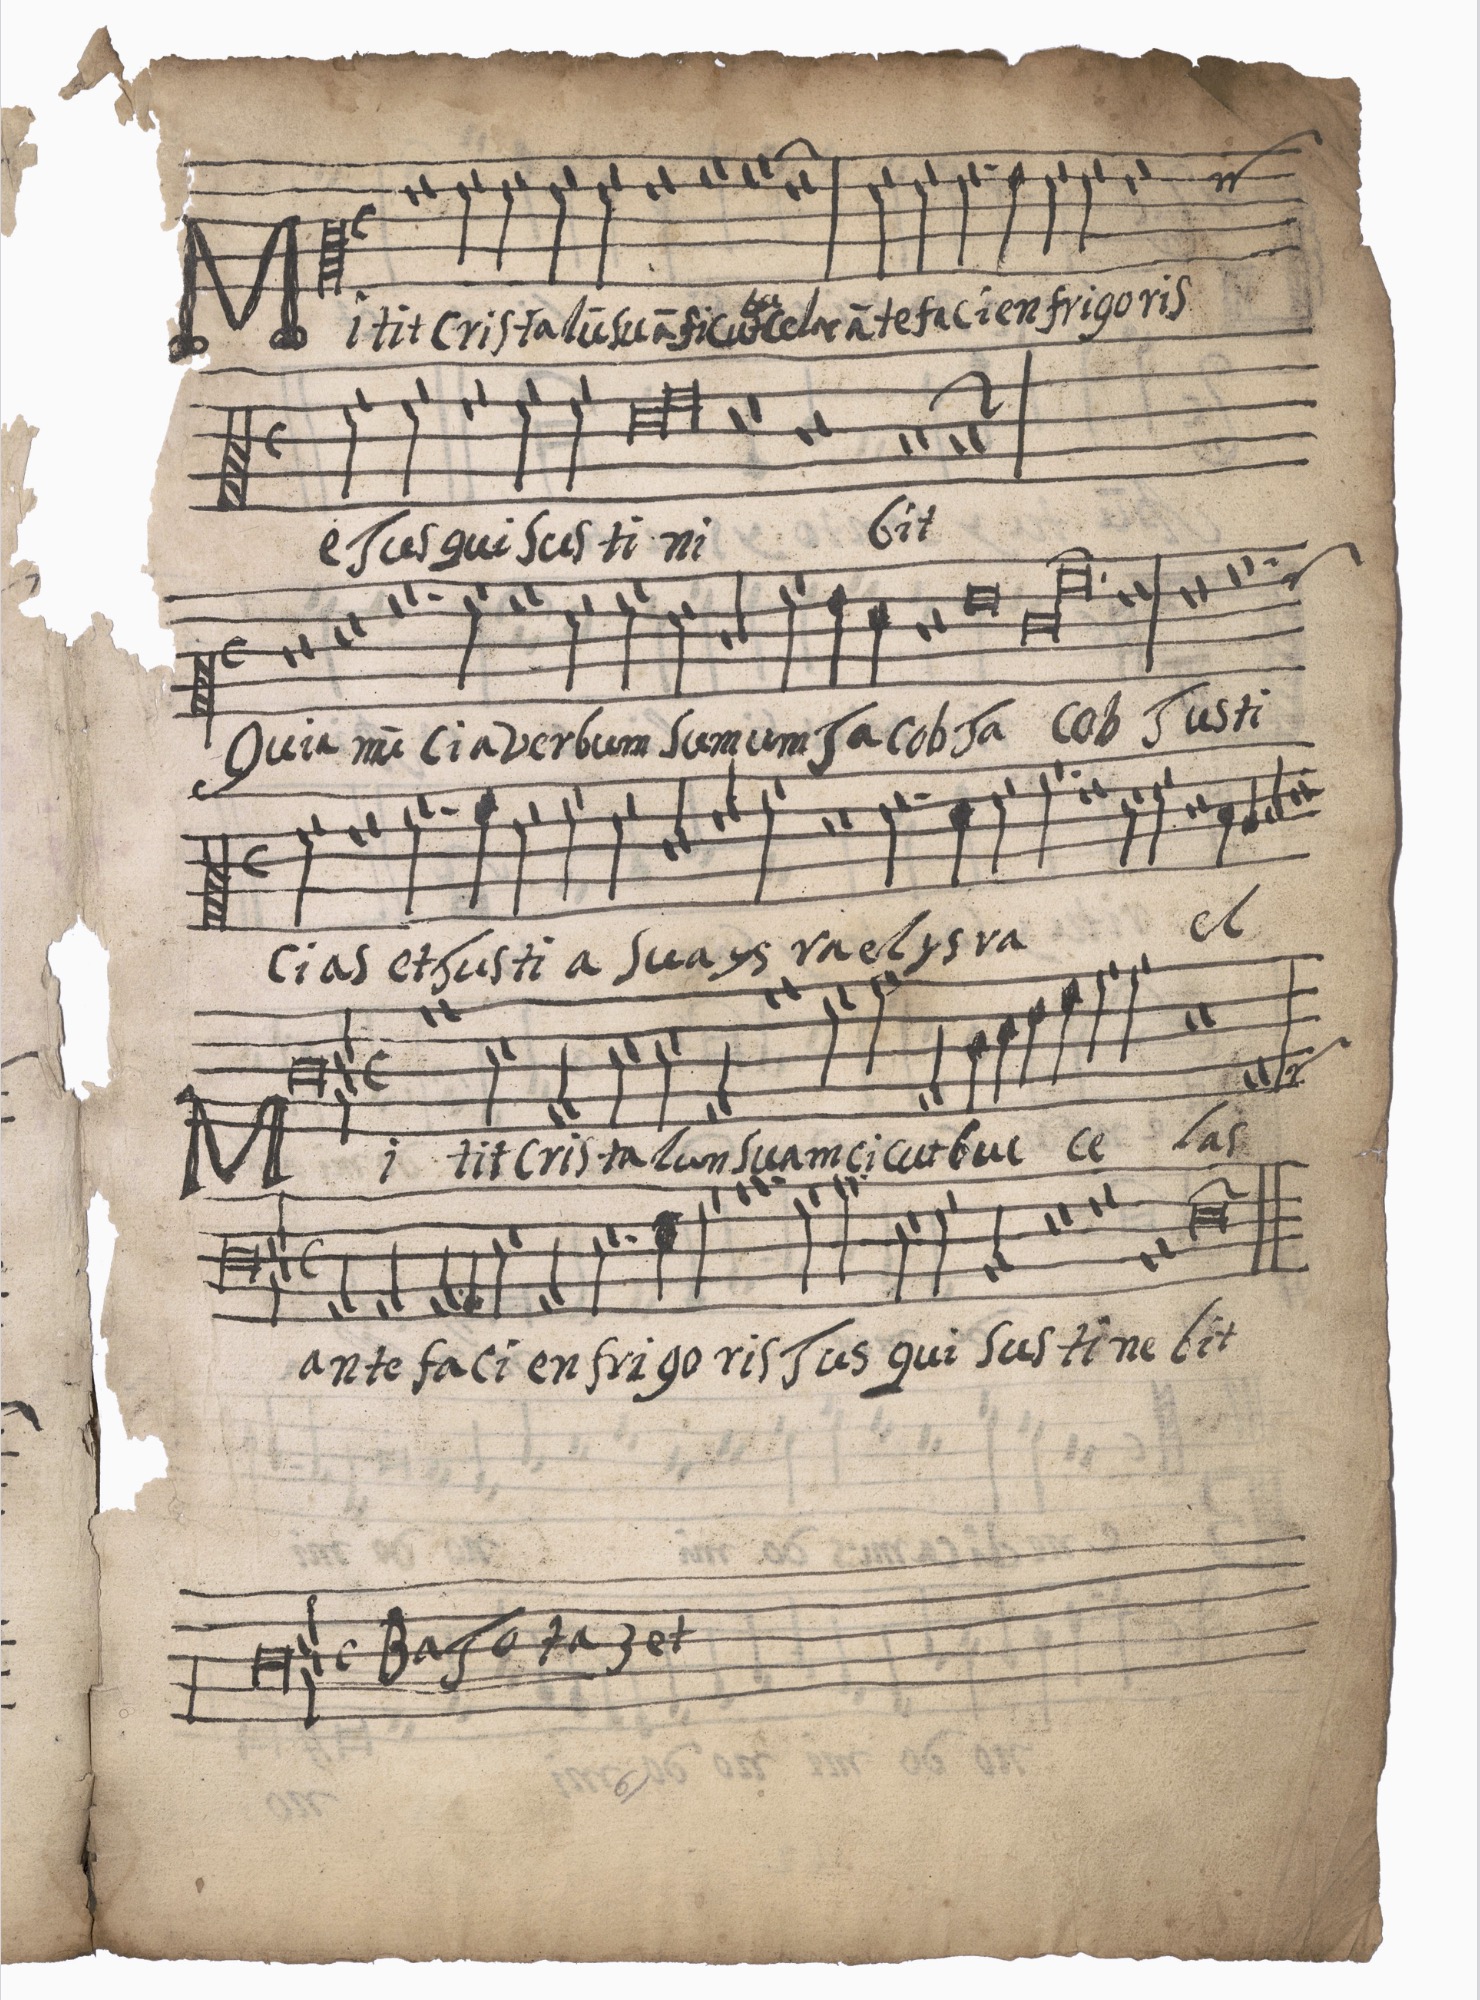 Mitit Cristalū suā sicut buccelae āte facien frigoris
eJus qui sus ti ni bit
Quia nūcia verbum sumum Jacob Ja cob Justi
cias et Justi a sua ys rael ys ra el
Mi tit Cristalun suam cicut buc ce las
ante faci en frigo ris Jus qui sus ti ne bit
C BaJo tazet